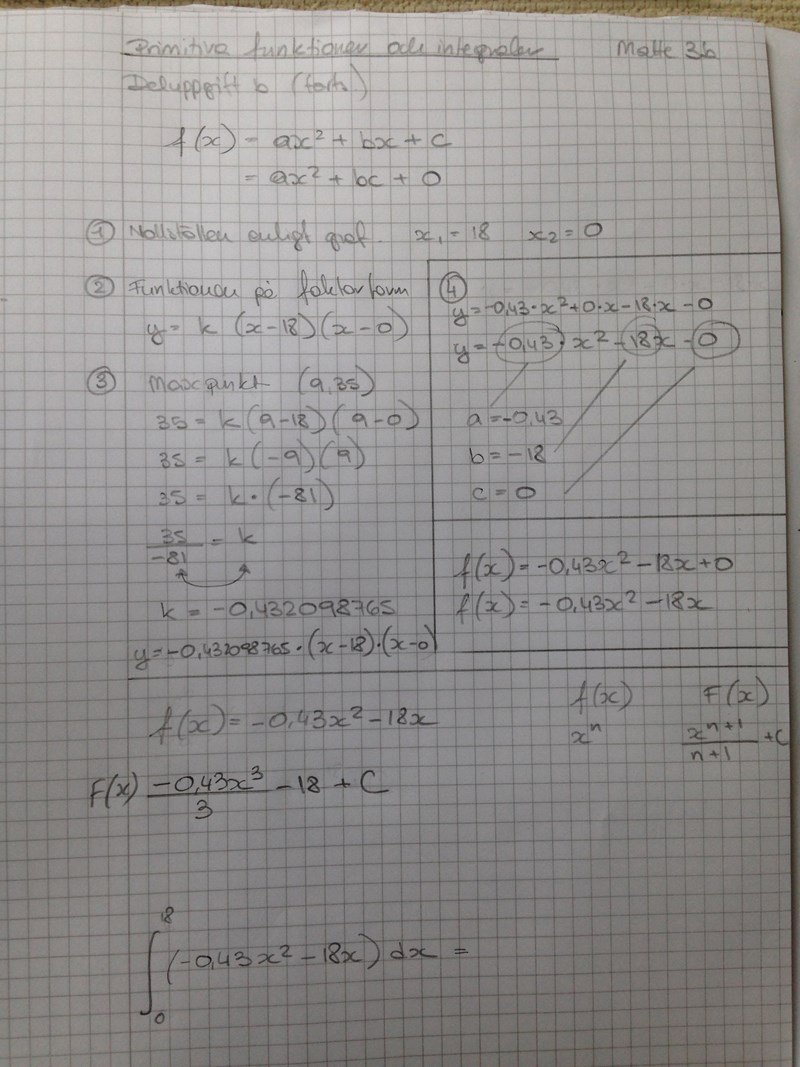 Primitiva funktioner och integraler Matte 3b
Deluppgift b (forts.)
f(x) = ax² + bx + c
= ax² + bc + 0
① Nollställen enligt graf. x₁ = 18 x₂ = 0
② Funktionen på faktorform
y = k (x-18)(x-0)
③ Maxpunkt (9,35)
35 = k(9-18)(9-0)
35 = k(-9)(9)
35 = k·(-81)
35/-81 = k
k = -0,432098765
y=-0,432098765·(x-18)·(x-0)
④
y=-0,43·x²+0·x-18·x-0
y=-0,43 x²-18x-0
a=-0,43
b=-18
c=0
f(x)=-0,43x²-18x+0
f(x)=-0,43x²-18x
f(x)=-0,43x²-18x
f(x) F(x)
xⁿ xⁿ⁺¹/n+1 +C
F(x) -0,43x³/3 -18 + C
∫₀¹⁸ (-0,43x²-18x) dx =